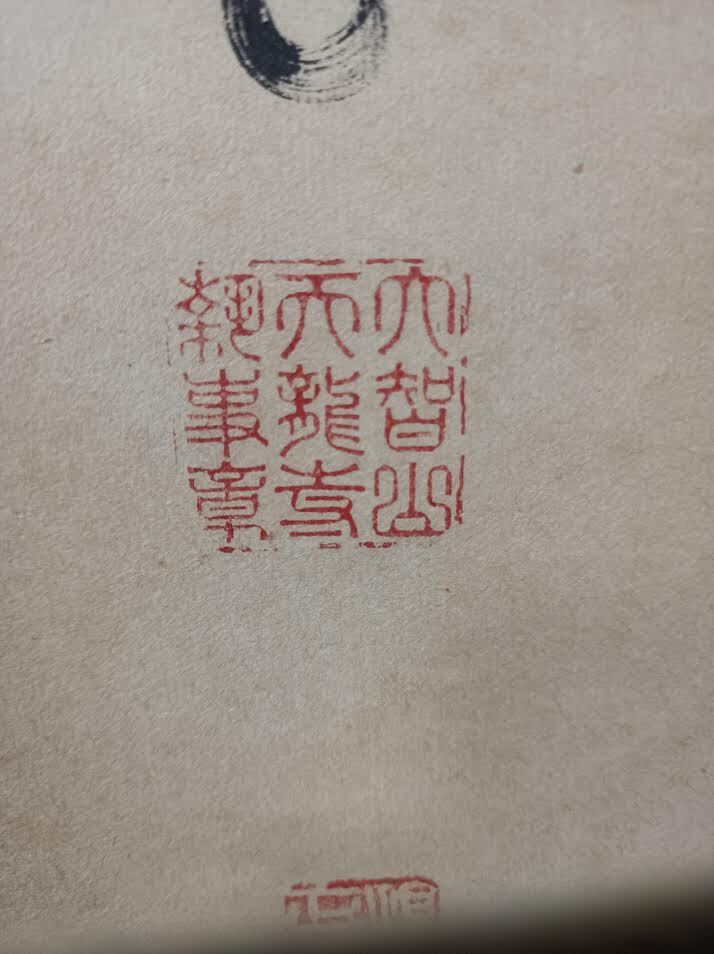 大智山
天龍寺
執事章